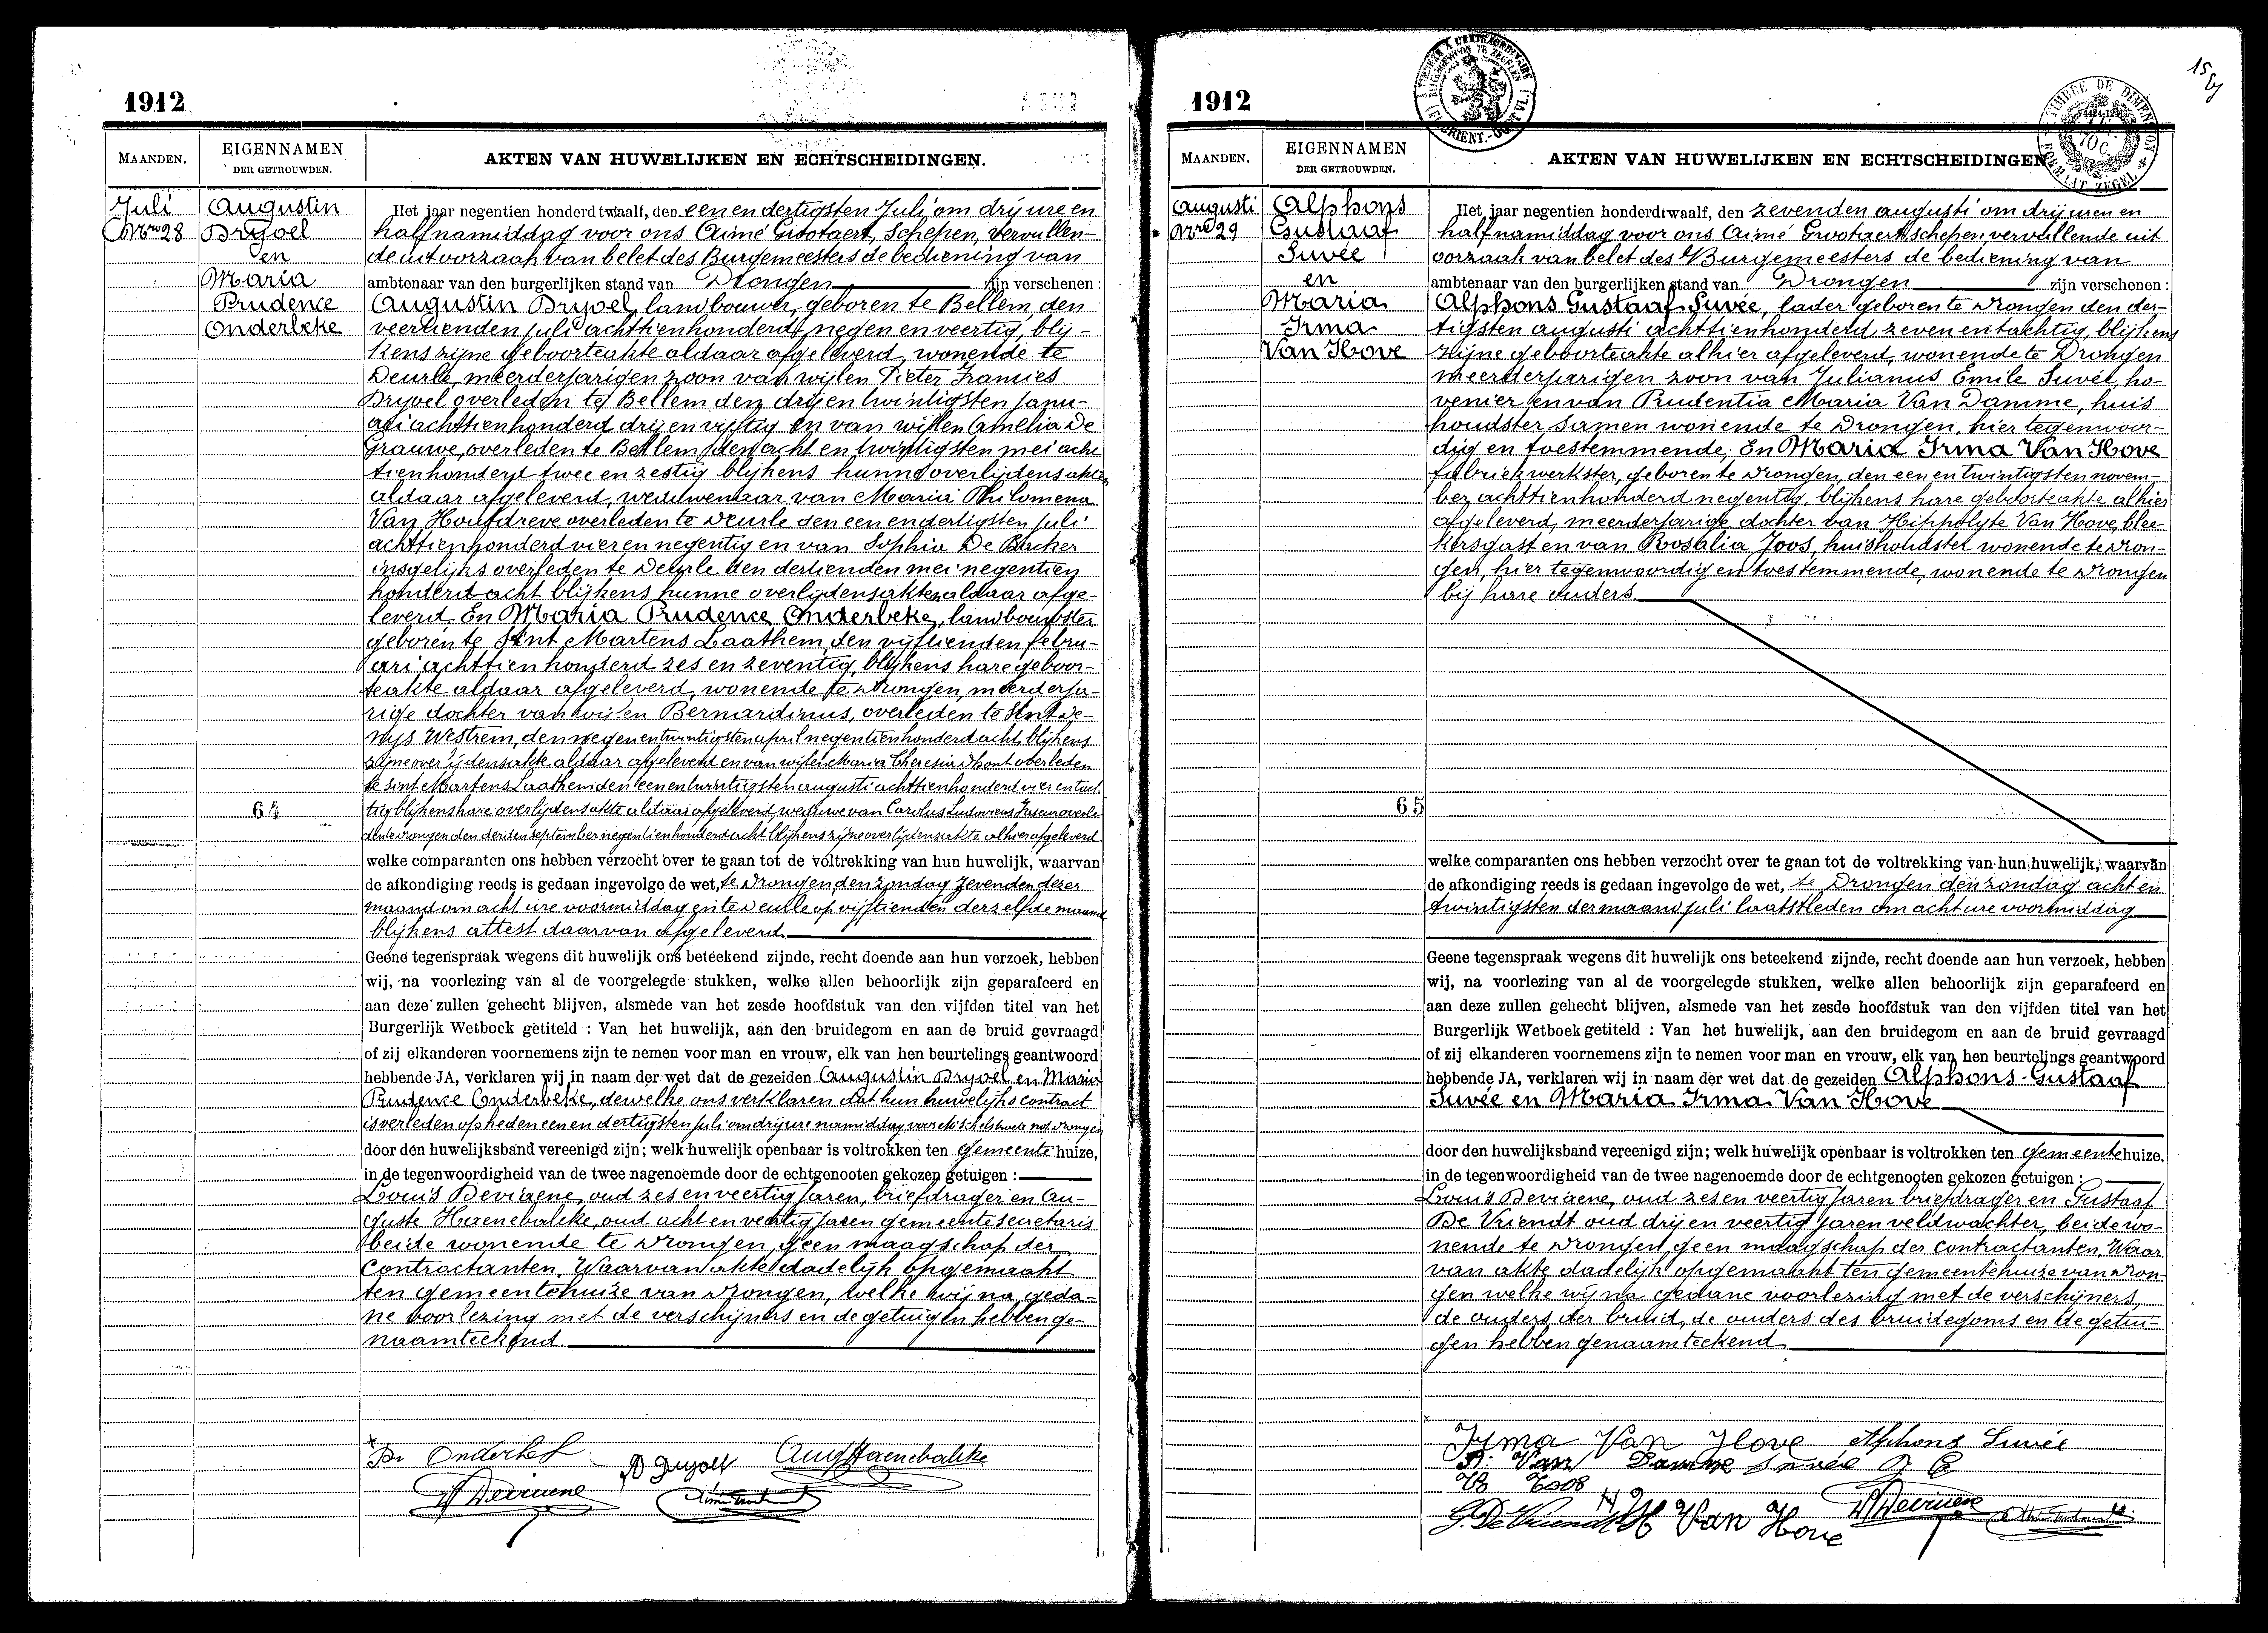 1912
MAANDEN.
EIGENNAMEN
DER GETROUWDEN.
AKTEN VAN HUWELIJKEN EN ECHTSCHEIDINGEN.
Juli
Nro 28
Augustin
Dryoel
en
Maria
Prudence
Onderbeke
64
Het jaar negentien honderd twaalf, den een en dertigsten Juli om drij ure en
half namiddag voor ons Aimé Grootaert, Schepen, vervullen-
de uit oorzaak van belet des Burgemeesters de bediening van
ambtenaar van den burgerlijken stand van Drongen zijn verschenen :
Augustin Dryoel, landbouwer, geboren te Bellem, den
veertienden juli achttienhonderd negen en veertig, blij-
kens zijne geboorteakte aldaar afgeleverd, wonende te
Deurle, meerderjarigen zoon van wijlen Pieter Francies
Dryoel overleden te Bellem den drij en twintigsten janu-
ari achttienhonderd drij en vijftig en van wijlen Amelia De
Grauwe, overleden te Bellem den acht en twintigsten mei acht
tienhonderd twee en zestig blijkens hunne overlijdensakten
aldaar afgeleverd, weduwenaar van Maria Philomena
Van Houtdreve overleden te Deurle den een en dertigsten juli
achttienhonderd vier en negentig en van Sophia De Backer
insgelijks overleden te Deurle den dertienden mei negentien
honderd acht blijkens hunne overlijdensakten aldaar afge-
leverd. En Maria Prudence Onderbeke, landbouwster
geboren te Sint Martens Laathem, den vijftienden febru-
ari achttienhonderd zes en zeventig, blijkens hare geboor-
teakte aldaar afgeleverd, wonende te Drongen, meerderja-
rige dochter van wijlen Bernardinus, overleden te Sint De-
nijs Westrem, den negen en twintigsten april negentienhonderd acht, blijkens
zijne overlijdensakte aldaar afgeleverd en van wijlen Maria Theresia Dhont overleden
te Sint Martens Laathem den een en twintigsten augusti achttienhonderd vier en tach
tig blijkens hare overlijdensakte aldaar afgeleverd, weduwe van Carolus Ludovicus overle-
den te Drongen den derden september negentienhonderd acht blijkens zijne overlijdensakte alhier afgeleverd
welke comparanten ons hebben verzocht over te gaan tot de voltrekking van hun huwelijk, waarvan
de afkondiging reeds is gedaan ingevolge de wet, te Drongen, den zondag zevenden dezer
maand om acht ure voormiddag en te Deurle op vijftienden derzelfde maand
blijkens attest daarvan afgeleverd.
Geene tegenspraak wegens dit huwelijk ons beteekend zijnde, recht doende aan hun verzoek, hebben
wij, na voorlezing van al de voorgelegde stukken, welke allen behoorlijk zijn geparafeerd en
aan deze zullen gehecht blijven, alsmede van het zesde hoofdstuk van den vijfden titel van het
Burgerlijk Wetboek getiteld : Van het huwelijk, aan den bruidegom en aan de bruid gevraagd
of zij elkanderen voornemens zijn te nemen voor man en vrouw, elk van hen beurtelings geantwoord
hebbende JA, verklaren wij in naam der wet dat de gezeiden Augustin Dryoel en Maria
Prudence Onderbeke, dewelke ons verklaren dat hun huwelijks contract
is verleden op heden een en dertigsten juli om drij ure namiddag voor not. Drongen
door den huwelijksband vereenigd zijn; welk huwelijk openbaar is voltrokken ten gemeente huize,
in de tegenwoordigheid van de twee nagenoemde door de echtgenooten gekozen getuigen :
Louis Deviaene, oud zes en veertig jaren, briefdrager en Au-
guste Haenebalcke, oud acht en veertig jaren gemeentesecretaris
beide wonende te Drongen, geen maagschap der
contractanten. Waarvan akte dadelijk opgemaakt
ten gemeentehuize van Drongen, welke wij na geda-
ne voorlezing met de verschijners en de getuigen hebben ge-
naamteekend.
Aug Haenebalcke
1912
15
A L'EXTRAORDINAIRE
TIMBRE DE DIMENSION
FORMAAT ZEGEL
MAANDEN.
EIGENNAMEN
DER GETROUWDEN.
AKTEN VAN HUWELIJKEN EN ECHTSCHEIDINGEN
Augusti
Nro 29
Alphons
Gustaaf
Suvée
en
Maria
Irma
Van Hove
65
Het jaar negentien honderd twaalf, den zevenden augusti om drij uren en
half namiddag voor ons Aimé Grootaert schepen vervullende uit
oorzaak van belet des Burgemeesters de bediening van
ambtenaar van den burgerlijken stand van Drongen zijn verschenen :
Alphons Gustaaf Suvée, lader geboren te Drongen den der-
tigsten augusti achttienhonderd zeven en tachtig, blijkens
zijne geboorteakte alhier afgeleverd, wonende te Drongen
meerderjarigen zoon van Julianus Emile Suvée, ho-
venier en van Prudentia Maria Van Damme, huis
houdster samen wonende te Drongen, hier tegenwoor-
dig en toestemmende. En Maria Irma Van Hove
fabriekwerkster, geboren te Drongen, den een en twintigsten novem-
ber achttienhonderd negentig, blijkens hare geboorteakte alhier
afgeleverd, meerderjarige dochter van Hippolyte Van Hove, blee-
kersgast en van Rosalia Joos, huishoudster wonende te Dron-
gen, hier tegenwoordig en toestemmende, wonende te Drongen
bij hare ouders
welke comparanten ons hebben verzocht over te gaan tot de voltrekking van hun huwelijk, waarvan
de afkondiging reeds is gedaan ingevolge de wet, te Drongen den zondag acht en
twintigsten der maand juli laatstleden om acht ure voormiddag
Geene tegenspraak wegens dit huwelijk ons beteekend zijnde, recht doende aan hun verzoek, hebben
wij, na voorlezing van al de voorgelegde stukken, welke allen behoorlijk zijn geparafeerd en
aan deze zullen gehecht blijven, alsmede van het zesde hoofdstuk van den vijfden titel van het
Burgerlijk Wetboek getiteld : Van het huwelijk, aan den bruidegom en aan de bruid gevraagd
of zij elkanderen voornemens zijn te nemen voor man en vrouw, elk van hen beurtelings geantwoord
hebbende JA, verklaren wij in naam der wet dat de gezeiden Alphons-Gustaaf
Suvée en Maria Irma Van Hove
door den huwelijksband vereenigd zijn; welk huwelijk openbaar is voltrokken ten gemeentehuize,
in de tegenwoordigheid van de twee nagenoemde door de echtgenooten gekozen getuigen :
Louis Deviaene, oud zes en veertig jaren briefdrager en Gustaaf
De Vriendt oud drij en veertig jaren veldwachter, beide wo-
nende te Drongen geen maagschap der contractanten, Waar
van akte dadelijk opgemaakt ten gemeentehuize van Dron-
gen welke wij na gedane voorlezing met de verschijners,
de ouders der bruid, de ouders des bruidegoms en de getui-
gen hebben genaamteekend
Irma Van Hove Alphons Suvée
Van Damme Suvée
Joos
G. De Vriendt Van Hove